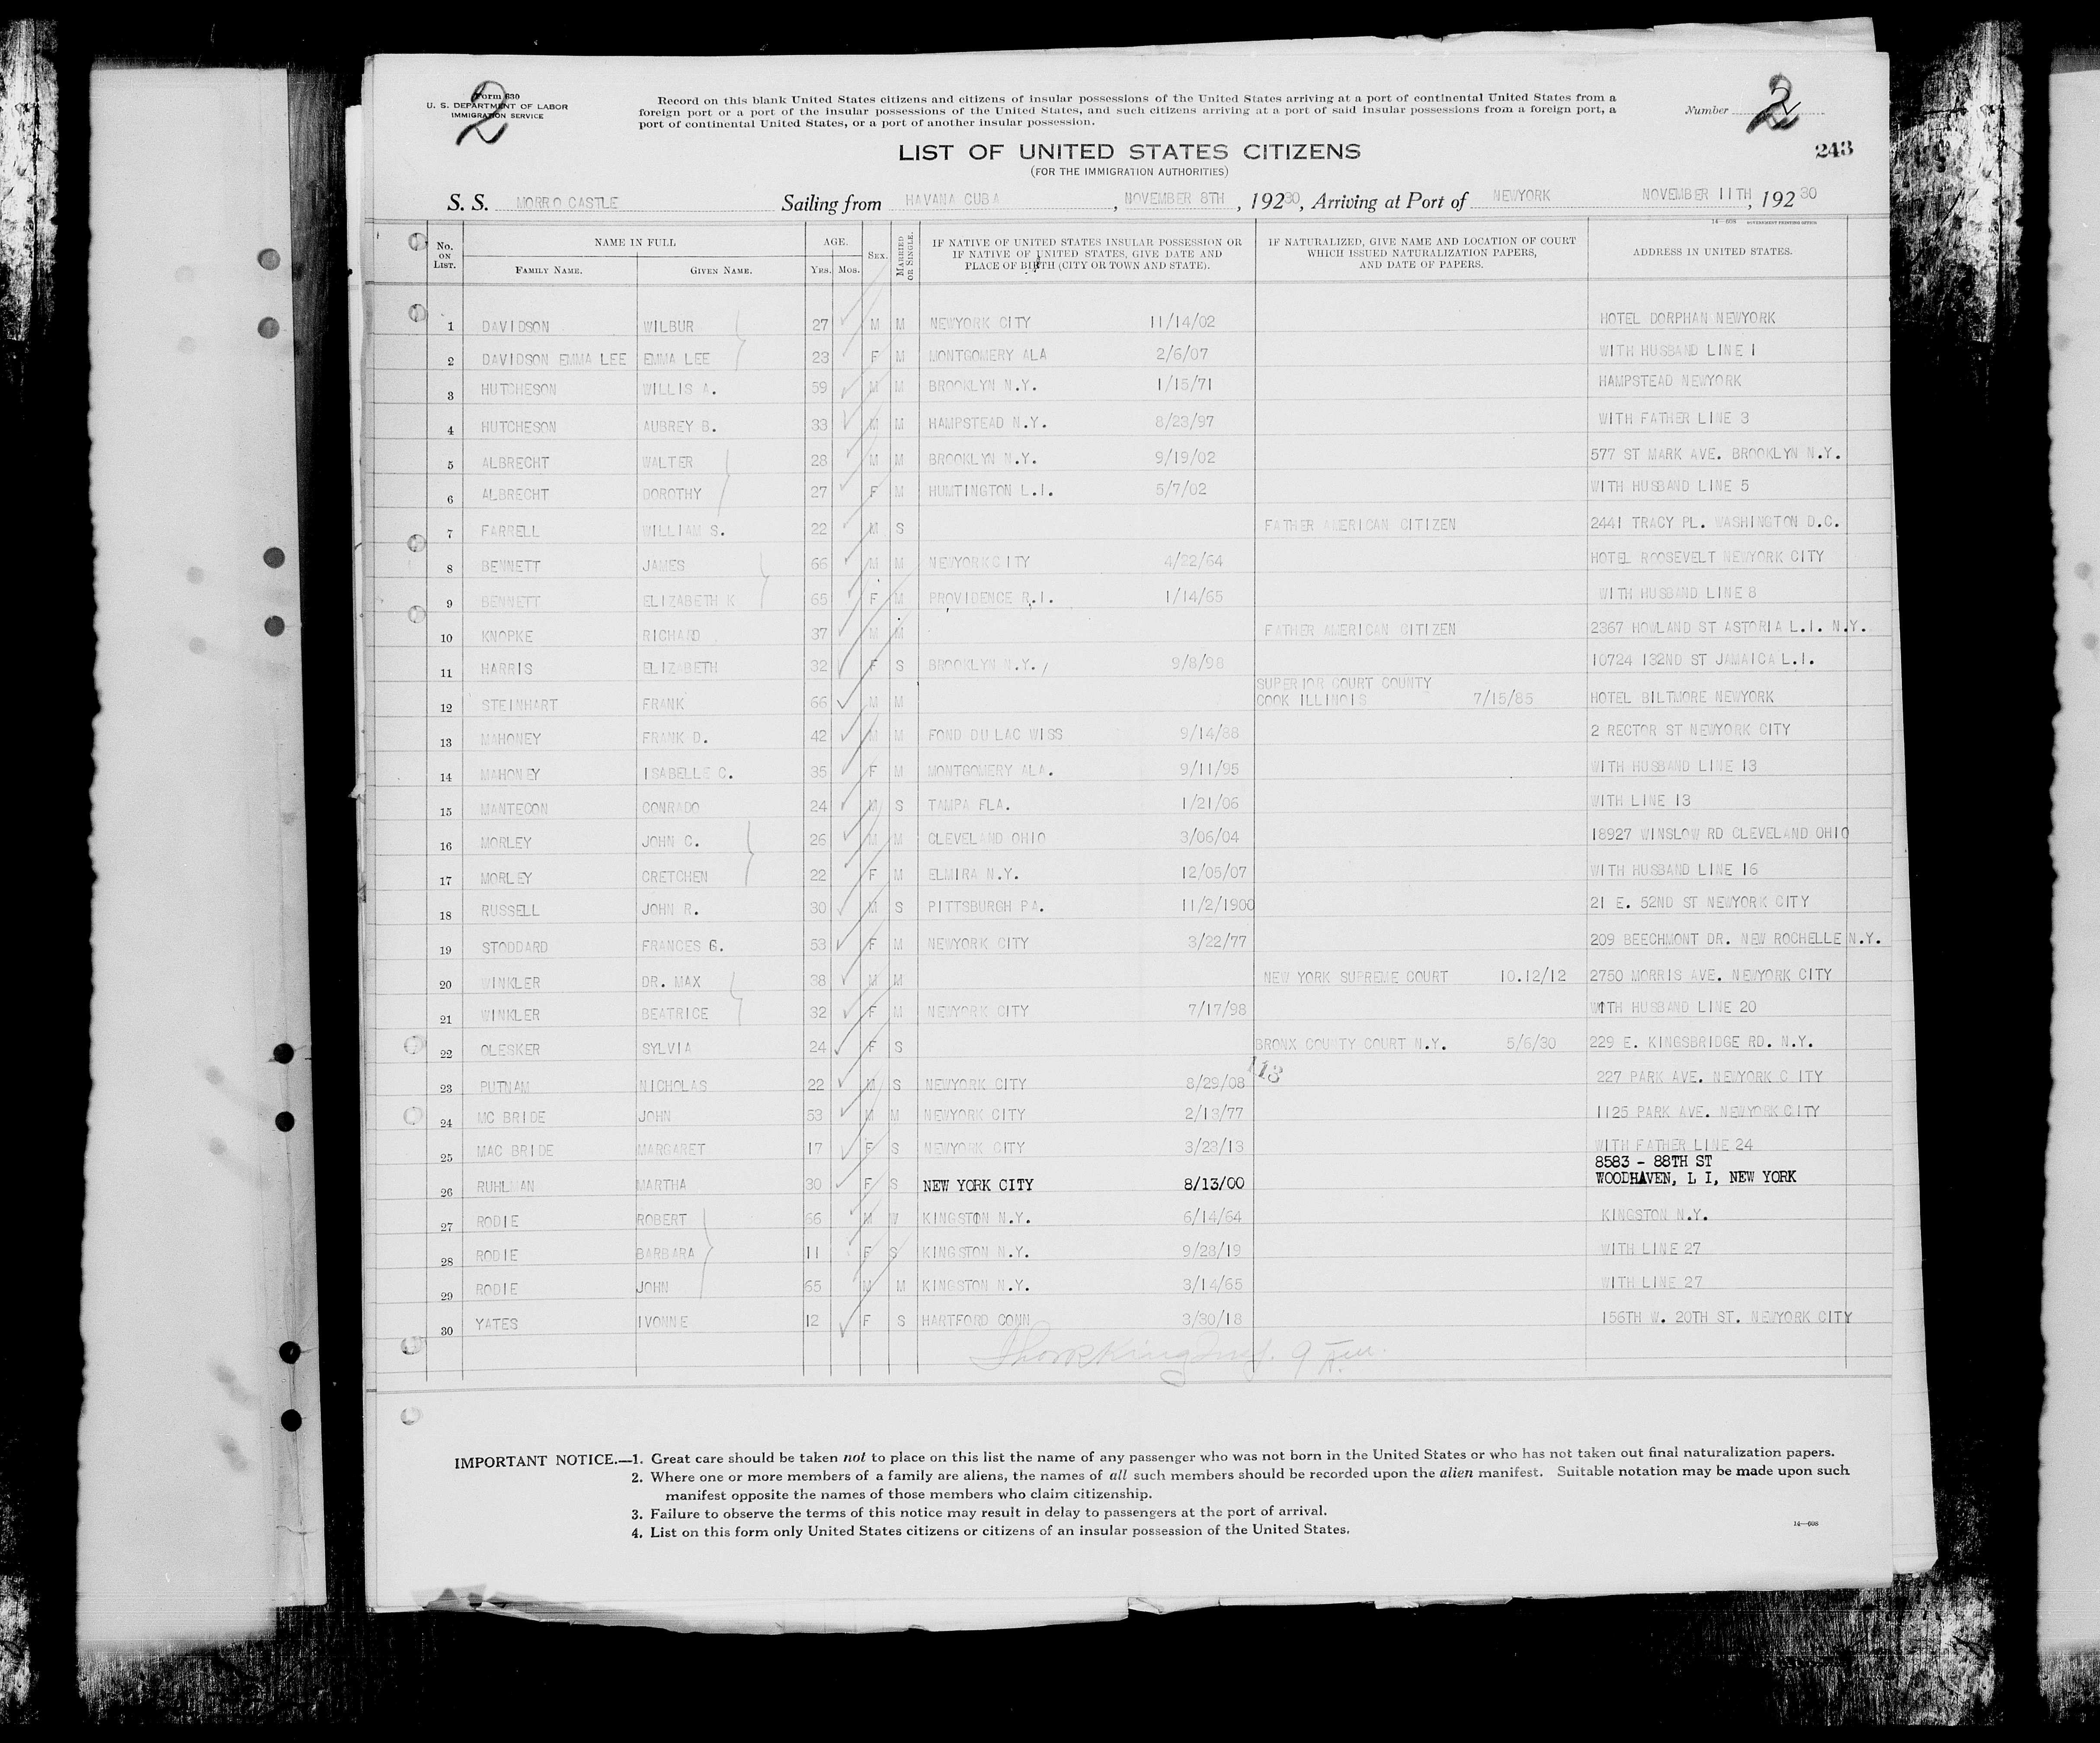 Form 630
U. S. DEPARTMENT OF LABOR
IMMIGRATION SERVICE
2
Record on this blank United States citizens and citizens of insular possessions of the United States arriving at a port of continental United States from a
foreign port or a port of the insular possessions of the United States, and such citizens arriving at a port of said insular possessions from a foreign port, a
port of continental United States, or a port of another insular possession.
Number 2
243
LIST OF UNITED STATES CITIZENS
(FOR THE IMMIGRATION AUTHORITIES)
S. S. MORRO CASTLE Sailing from HAVANA CUBA, NOVEMBER 8TH, 19230, Arriving at Port of NEWYORK NOVEMBER 11TH, 19230
14—608 GOVERNMENT PRINTING OFFICE
No. ON LIST. NAME IN FULL AGE. SEX. MARRIED OR SINGLE. IF NATIVE OF UNITED STATES INSULAR POSSESSION OR IF NATIVE OF UNITED STATES, GIVE DATE AND PLACE OF BIRTH (CITY OR TOWN AND STATE). IF NATURALIZED, GIVE NAME AND LOCATION OF COURT WHICH ISSUED NATURALIZATION PAPERS, AND DATE OF PAPERS. ADDRESS IN UNITED STATES.
FAMILY NAME. GIVEN NAME. YRS. MOS.
1 DAVIDSON WILBUR 27 M M NEWYORK CITY 11/14/02 HOTEL DORPHAN NEWYORK
2 DAVIDSON EMMA LEE EMMA LEE 23 F M MONTGOMERY ALA 2/6/07 WITH HUSBAND LINE 1
3 HUTCHESON WILLIS A. 59 M M BROOKLYN N.Y. 1/15/71 HAMPSTEAD NEWYORK
4 HUTCHESON AUBREY B. 33 M M HAMPSTEAD N.Y. 8/23/97 WITH FATHER LINE 3
5 ALBRECHT WALTER 28 M M BROOKLYN N.Y. 9/19/02 577 ST MARK AVE. BROOKLYN N.Y.
6 ALBRECHT DOROTHY 27 F M HUMTINGTON L.I. 5/7/02 WITH HUSBAND LINE 5
7 FARRELL WILLIAM S. 22 M S FATHER AMERICAN CITIZEN 2441 TRACY PL. WASHINGTON D.C.
8 BENNETT JAMES 66 M M NEWYORKCITY 4/22/64 HOTEL ROOSEVELT NEWYORK CITY
9 BENNETT ELIZABETH K 65 F M PROVIDENCE R.I. 1/14/65 WITH HUSBAND LINE 8
10 KNOPKE RICHARD 37 M M FATHER AMERICAN CITIZEN 2367 HOWLAND ST ASTORIA L.I. N.Y.
11 HARRIS ELIZABETH 32 F S BROOKLYN N.Y. 9/8/98 10724 132ND ST JAMAICA L.I.
SUPERIOR COURT COUNTY
12 STEINHART FRANK 66 M M COOK ILLINOIS 7/15/85 HOTEL BILTMORE NEWYORK
13 MAHONEY FRANK D. 42 M M FOND DU LAC WISS 9/14/88 2 RECTOR ST NEWYORK CITY
14 MAHONEY ISABELLE C. 35 F M MONTGOMERY ALA. 9/11/95 WITH HUSBAND LINE 13
15 MANTECON CONRADO 24 M S TAMPA FLA. 1/21/06 WITH LINE 13
16 MORLEY JOHN C. 26 M M CLEVELAND OHIO 3/06/04 18927 WINSLOW RD CLEVELAND OHIO
17 MORLEY CRETCHEN 22 F M ELMIRA N.Y. 12/05/07 WITH HUSBAND LINE 16
18 RUSSELL JOHN R. 30 M S PITTSBURGH PA. 11/2/1900 21 E. 52ND ST NEWYORK CITY
19 STODDARD FRANCES G. 53 F M NEWYORK CITY 3/22/77 209 BEECHMONT DR. NEW ROCHELLE N.Y.
20 WINKLER DR. MAX 38 M M NEW YORK SUPREME COURT 10.12/12 2750 MORRIS AVE. NEWYORK CITY
21 WINKLER BEATRICE 32 F M NEWYORK CITY 7/17/98 WITH HUSBAND LINE 20
22 OLESKER SYLVIA 24 F S BRONX COUNTY COURT N.Y. 5/6/30 229 E. KINGSBRIDGE RD. N.Y.
23 PUTNAM NICHOLAS 22 M S NEWYORK CITY 8/29/08 113 227 PARK AVE. NEWYORK C ITY
24 MC BRIDE JOHN 53 M M NEWYORK CITY 2/13/77 1125 PARK AVE. NEWYORK CITY
25 MAC BRIDE MARGARET 17 F S NEWYORK CITY 3/23/13 WITH FATHER LINE 24
8583 - 88TH ST
26 RUHLMAN MARTHA 30 F S NEW YORK CITY 8/13/00 WOODHAVEN, L I, NEW YORK
27 RODIE ROBERT 66 M W KINGSTON N.Y. 6/14/64 KINGSTON N.Y.
28 RODIE BARBARA 11 F S KINGSTON N.Y. 9/28/19 WITH LINE 27
29 RODIE JOHN 65 M M KINGSTON N.Y. 3/14/65 WITH LINE 27
30 YATES IVONNE 12 F S HARTFORD CONN 3/30/18 156TH W. 20TH ST. NEWYORK CITY
IMPORTANT NOTICE.—1. Great care should be taken not to place on this list the name of any passenger who was not born in the United States or who has not taken out final naturalization papers.
2. Where one or more members of a family are aliens, the names of all such members should be recorded upon the alien manifest. Suitable notation may be made upon such
manifest opposite the names of those members who claim citizenship.
3. Failure to observe the terms of this notice may result in delay to passengers at the port of arrival.
4. List on this form only United States citizens or citizens of an insular possession of the United States.
14—608